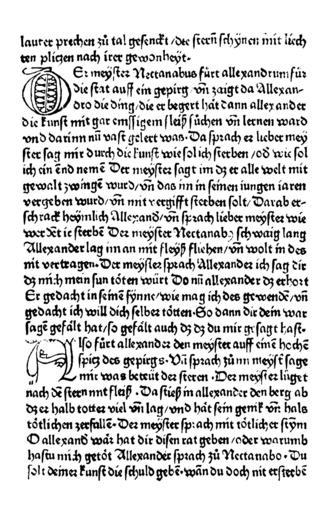 lauter prechen zů tal gesenckt / der steren schynen mit liech
ten plitzen nach irer gewonheyt.
DEr meyster Nectanabus fürt allexandrum für
die stat auff ein gepirg vn̄ zaigt da Allexan-
dro die ding / die er begert hat dann allexander
die kunst mit gar emssigem fleiß sůchen vn̄ lernen ward
vnd darinn nů vast gelert was. Da sprach er lieber mey
ster sag mir durch die kunst wie sol ich sterben / od̕ wie sol
ich ein end nemē Der meyster sagt im dz er alle welt mit
gewalt zwinge wurd / vn̄ das im in seinen iungen iaren
vergeben wurd / vn̄ mit vergifft sterben solt / Darab er-
schrack heymlich Allexand̕ / vn̄ sprach lieber meyster wie
werdēt ir sterbē Der meyster Nectanab9 schwaig lang
Allexander lag im an mit fleyß fliehen / vn̄ wolt in des
nit vertragen. Der meyster sprach Allexander ich sag dir
dz mich mein sun töten würt Do nū allexander dz erhort
Er gedacht in seinē synne / wie mag ich des gewendē / vn̄
gedacht ich will dich selber tötten. So dann dir dein war
sagē gefält hat / so gefält auch dz dz du mir gesagt hast.
Also fürt allexander den meyster auff einē hochē
spitz des gepirgs. Vn̄ sprach zů im meyst̕ sage
mir was betrüt der steren. Der meyster lůget
nach dē stern mit fleiß. Da stieß in allexander den berg ab
dz er halb totter viel vn̄ lag / vnd hat sein genik vn̄ hals
tötlichen zerfallē. Der meyster sprach mit tötlicher stym̄
O allexand̕ wär hat dir disen rat geben / oder warumb
hastu mich getöt Allexander sprach zů Nectanabo. Du
solt deiner kunst die schuld gebē. wan̄ du doch nit ersterbē